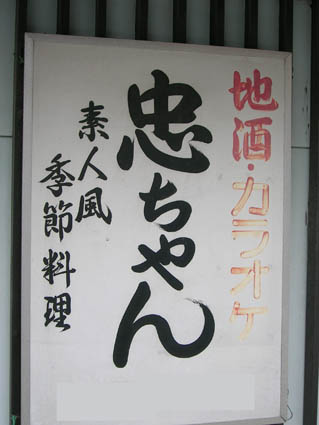 地酒・カラオケ
忠ちゃん
素人風
季節料理